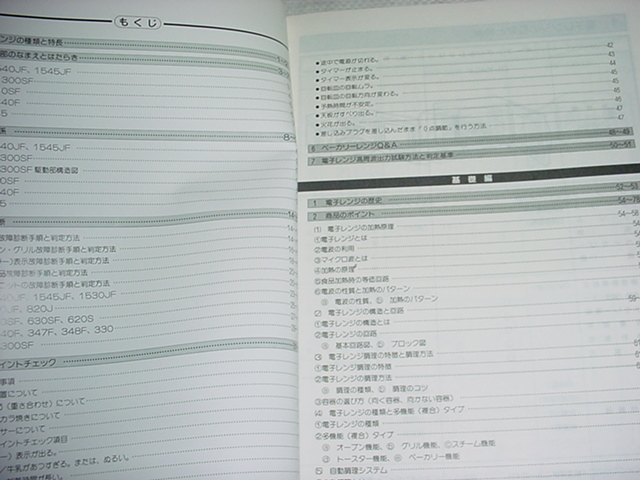 もくじ
ンジの種類と特長
部のなまえとはたらき
40JF、1545JF
300SF
0SF
40F
5
8~
40JF、1545JF
300SF
300SF 駆動部構造図
0SF
40F
5
断
故障診断手順と判定方法
ン・グリル故障診断手順と判定方法
ー)表示故障診断手順と判定方法
品故障診断手順と判定方法
ーの故障診断手順と判定方法
40JF、1545JF、1530JF
0JF、820J
0SF、630SF、620S
40F、347F、348F、330
300SF
イントチェック
事項
置について
め(重き合わせ)について
カラ焼きについて
サーについて
イントチェック項目
ー)表示が出る。
/牛乳があつすぎる。または、ぬるい。
●途中で電源が切れる。 42
●タイマーが止まる。 43
●タイマー表示が戻る。 44
●回転皿の回転ムラ。 45
●回転皿の回転方向が変わる。 45
●予熱時間が不安定。 46
●天板がすべり出る。 47
●火花が出る。 47
●差し込みプラグを差し込んだまま「0点調節」を行う方法 47
6 ベーカリーレンジQ&A 48~49
7 電子レンジ高周波出力試験方法と判定基準 50~51
基礎編
1 電子レンジの歴史 52~53
2 商品のポイント 54~78
(1) 電子レンジの加熱原理 54~58
①電子レンジとは 54
②電波の利用
③マイクロ波とは
④加熱の原理
⑤食品加熱時の等価回路
⑥電波の性質と加熱のパターン
ⓐ 電波の性質、ⓑ 加熱のパターン
(2) 電子レンジの構造と回路
①電子レンジの構造とは
②電子レンジの回路
ⓐ 基本回路図、ⓑ ブロック図
(3) 電子レンジ調理の特徴と調理方法
①電子レンジ調理の特徴
②電子レンジの調理方法
ⓐ 調理の種類、ⓑ 調理のコツ
③容器の選び方(向く容器、向かない容器)
(4) 電子レンジの種類と多機能(複合)タイプ
①電子レンジの種類
②多機能(複合)タイプ
ⓐ オーブン機能、ⓑ グリル機能、ⓒスチーム機能
ⓓ トースター機能、ⓔ ベーカリー機能
(5) 自動調理システム